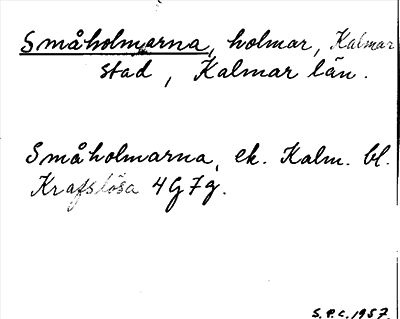 Småholmarna, holmar, Kalmar
stad, Kalmar län.
Småholmarna, ek. Kalm. bl.
Krafslösa 4G7g.
S.P.C. 1957.